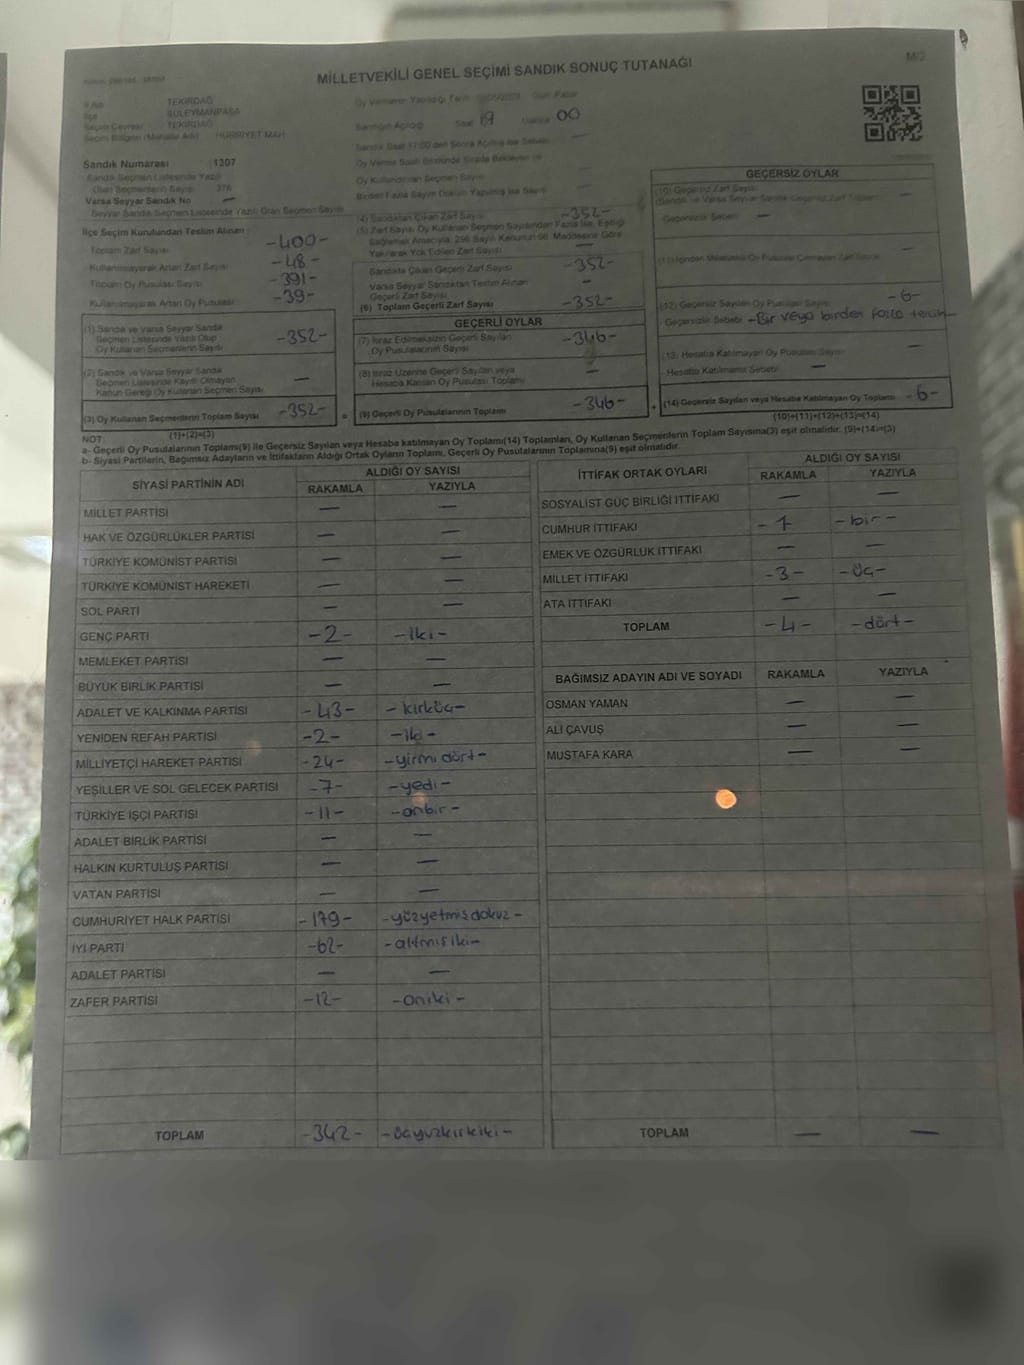 M/2
MİLLETVEKİLİ GENEL SEÇİMİ SANDIK SONUÇ TUTANAĞI
TEKİRDAĞ
SÜLEYMANPAŞA
Seçim Çevresi TEKİRDAĞ
Seçim Bölgesi (Mahalle Adı) HÜRRİYET MAH.
Sandık Numarası 1307
Sandık Seçmen Listesinde Yazılı
Olan Seçmenlerin Sayısı 376
Varsa Seyyar Sandık No —
Seyyar Sandık Seçmen Listesinde Yazılı Olan Seçmen Sayısı
İlçe Seçim Kurulundan Teslim Alınan :
Toplam Zarf Sayısı -400-
Kullanılmayarak Artan Zarf Sayısı -48-
Toplam Oy Pusulası Sayısı -391-
Kullanılmayarak Artan Oy Pusulası -39-
(1) Sandık ve Varsa Seyyar Sandık
Seçmen Listesinde Yazılı Olup
Oy Kullanan Seçmenlerin Sayısı -352-
(2) Sandık ve Varsa Seyyar Sandık
Seçmen Listesinde Kaydı Olmayan
Kanun Gereği Oy Kullanan Seçmen Sayısı —
(3) Oy Kullanan Seçmenlerin Toplam Sayısı -352-
(1)+(2)=(3)
Sandığın Açıldığı Saat 19 Dakika 00
Oy Kullandırılan Seçmen Sayısı
Birden Fazla Sayım Döküm Yapılmış İse Sayısı
(4) Sandıktan Çıkan Zarf Sayısı -352-
(5) Zarf Sayısı Oy Kullanan Seçmen Sayısından Fazla İse, Eşitliği
Sağlamak Amacıyla, 298 Sayılı Kanunun 98. Maddesine Göre
Yakılarak Yok Edilen Zarf Sayısı —
Sandıkta Çıkan Geçerli Zarf Sayısı -352-
Varsa Seyyar Sandıktan Teslim Alınan
Geçerli Zarf Sayısı —
(6) Toplam Geçerli Zarf Sayısı -352-
GEÇERLİ OYLAR
(7) İtiraz Edilmeksizin Geçerli Sayılan
Oy Pusulalarının Sayısı -346-
(8) İtiraz Üzerine Geçerli Sayılan veya
Hesaba Katılan Oy Pusulası Toplamı —
(9) Geçerli Oy Pusulalarının Toplamı -346-
GEÇERSİZ OYLAR
(10) Geçersiz Zarf Sayısı
(Sandık ve Varsa Seyyar Sandık Geçersiz Zarf Toplamı) —
Geçersizlik Sebebi —
(12) Geçersiz Sayılan Oy Pusulası Sayısı -6-
Geçersizlik Sebebi -Bir veya birden fazla tercih-
(13) Hesaba Katılmayan Oy Pusulası Sayısı —
Hesaba Katılmama Sebebi —
(14) Geçersiz Sayılan veya Hesaba Katılmayan Oy Toplamı -6-
(10)+(11)+(12)+(13)=(14)
NOT:
a- Geçerli Oy Pusulalarının Toplamı(9) ile Geçersiz Sayılan veya Hesaba katılmayan Oy Toplamı(14) Toplamları, Oy Kullanan Seçmenlerin Toplam Sayısına(3) eşit olmalıdır. (9)+(14)=(3)
b- Siyasi Partilerin, Bağımsız Adayların ve İttifakların Aldığı Ortak Oyların Toplamı, Geçerli Oy Pusulalarının Toplamına(9) eşit olmalıdır.
SİYASİ PARTİNİN ADI ALDIĞI OY SAYISI
RAKAMLA YAZIYLA
MİLLET PARTİSİ — —
HAK VE ÖZGÜRLÜKLER PARTİSİ — —
TÜRKİYE KOMÜNİST PARTİSİ — —
TÜRKİYE KOMÜNİST HAREKETİ — —
SOL PARTİ — —
GENÇ PARTİ -2- -iki-
MEMLEKET PARTİSİ — —
BÜYÜK BİRLİK PARTİSİ — —
ADALET VE KALKINMA PARTİSİ -43- -kırküç-
YENİDEN REFAH PARTİSİ -2- -iki-
MİLLİYETÇİ HAREKET PARTİSİ -24- -yirmi dört-
YEŞİLLER VE SOL GELECEK PARTİSİ -7- -yedi-
TÜRKİYE İŞÇİ PARTİSİ -11- -onbir-
ADALET BİRLİK PARTİSİ — —
HALKIN KURTULUŞ PARTİSİ — —
VATAN PARTİSİ — —
CUMHURİYET HALK PARTİSİ -179- -yüzyetmişdokuz-
İYİ PARTİ -62- -altmışiki-
ADALET PARTİSİ — —
ZAFER PARTİSİ -12- -oniki-
TOPLAM -342- -üçyüzkırkiki-
İTTİFAK ORTAK OYLARI ALDIĞI OY SAYISI
RAKAMLA YAZIYLA
SOSYALİST GÜÇ BİRLİĞİ İTTİFAKI — —
CUMHUR İTTİFAKI -1- -bir-
EMEK VE ÖZGÜRLÜK İTTİFAKI — —
MİLLET İTTİFAKI -3- -üç-
ATA İTTİFAKI — —
TOPLAM -4- -dört-
BAĞIMSIZ ADAYIN ADI VE SOYADI RAKAMLA YAZIYLA
OSMAN YAMAN — —
ALİ ÇAVUŞ — —
MUSTAFA KARA — —
TOPLAM — —